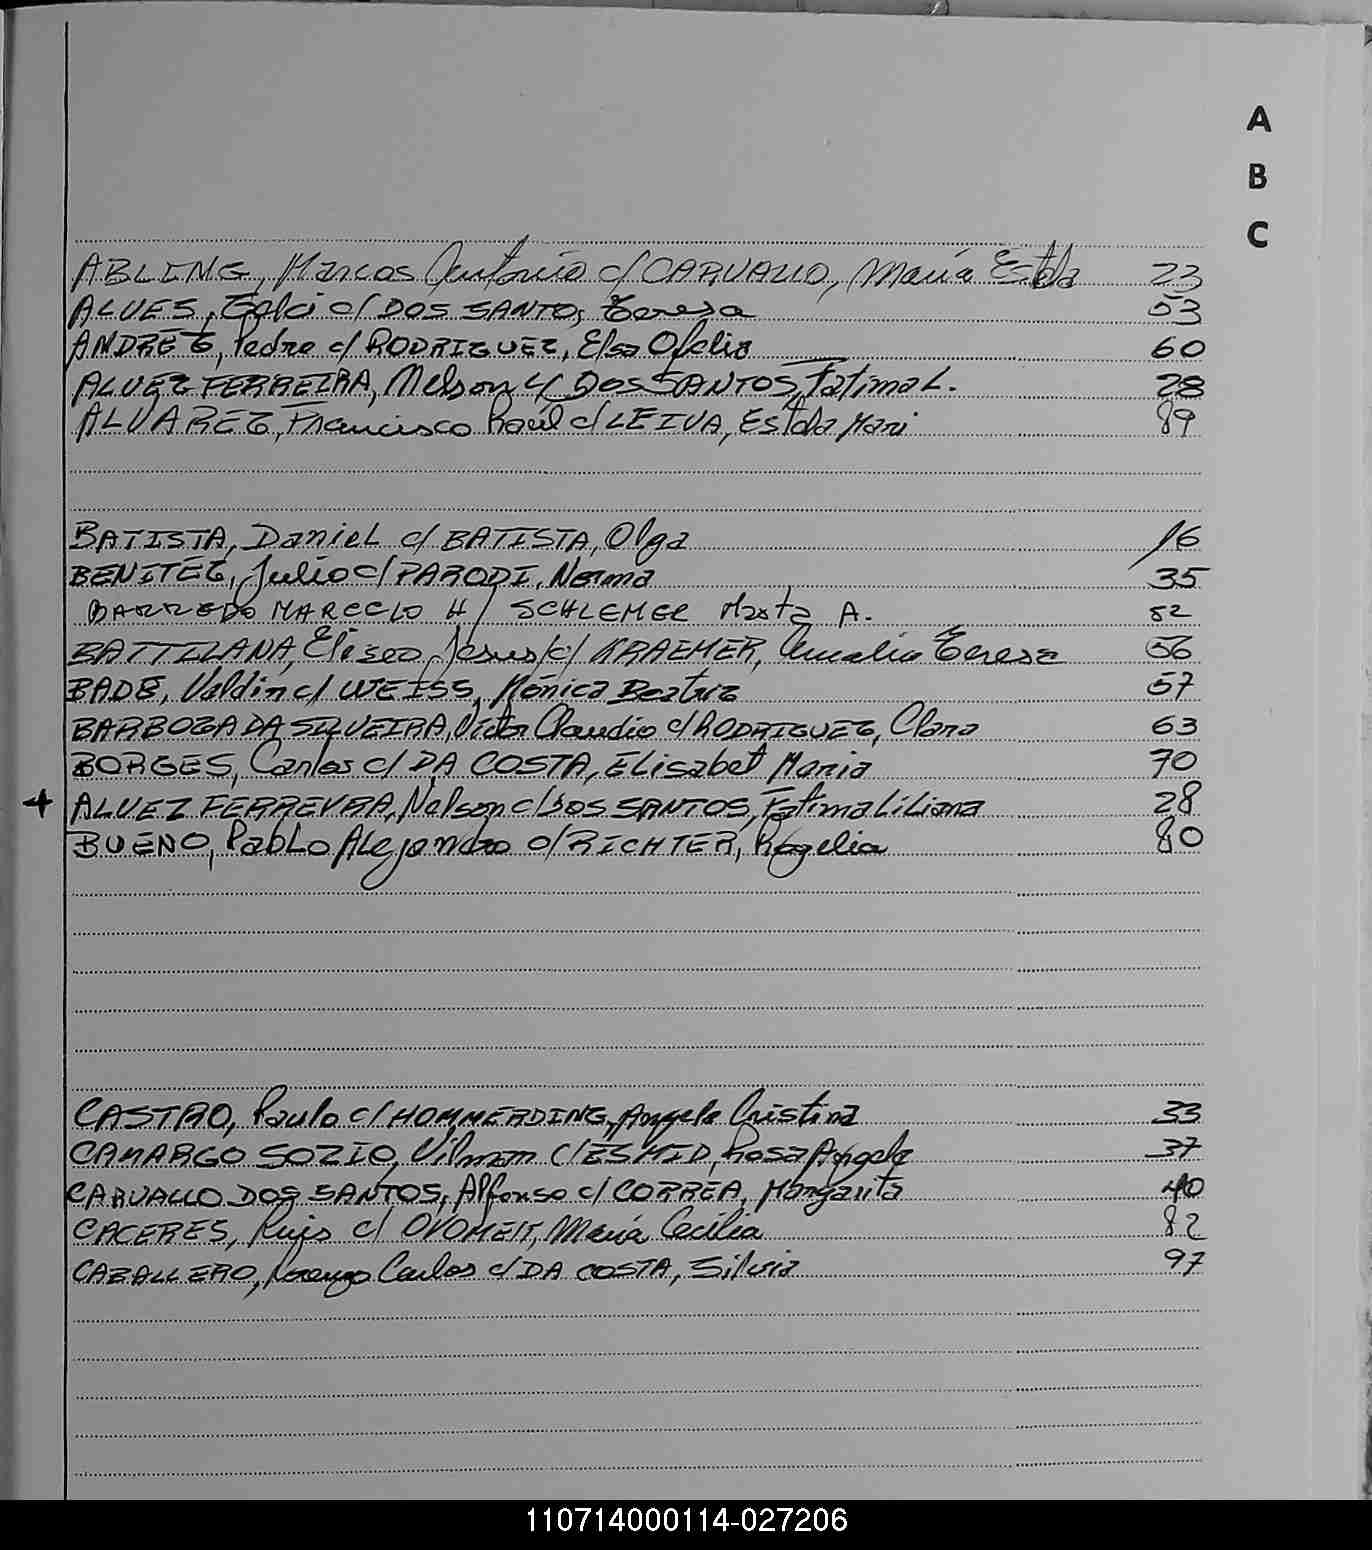 A
B
C
ABLING, Marcos Antonio c/ CARVALLO, María Estela 23
ALVES, c/ DOS SANTO, Teresa 53
ANDREZ, Pedro c/ RODRIGUEZ, Elsa Ofelia 60
ALVEZ FERREIRA, Nelson c/ DOS SANTOS, Fatima L. 28
ALVAREZ, Francisco Raúl c/ LEIVA, Estela Mari 89
BATISTA, Daniel c/ BATISTA, Olga 16
BENITEZ, Julio c/ PARODI, Norma 35
BARREDO MARCELO H/ SCHLEMER Marta A. 52
BATTILANA, Eliseo Jesus c/ KRAEMER, Amalia Teresa 56
BADE, Valdin c/ WEISS, Mónica Beatriz 57
BARBOZA DA SILVEIRA, Victor Claudio c/ RODRIGUEZ, Clara 63
BORGES, Carlos c/ DA COSTA, Elisabet Maria 70
+ ALVEZ FERREYRA, Nelson c/ DOS SANTOS, Fatima Liliana 28
BUENO, Pablo Alejandro c/ RICHTER, Rogelia 80
CASTRO, Paulo c/ HOMMERDING, Angela Cristina 33
CAMARGO SOZIO, Vilmar c/ ESMID, Rosa Angela 37
CARVALLO DOS SANTOS, Alfonso c/ CORREA, Margarita 40
CACERES, c/ María Cecilia 82
CABALLERO, Lorenzo Carlos c/ DA COSTA, Silvia 97
110714000114-027206